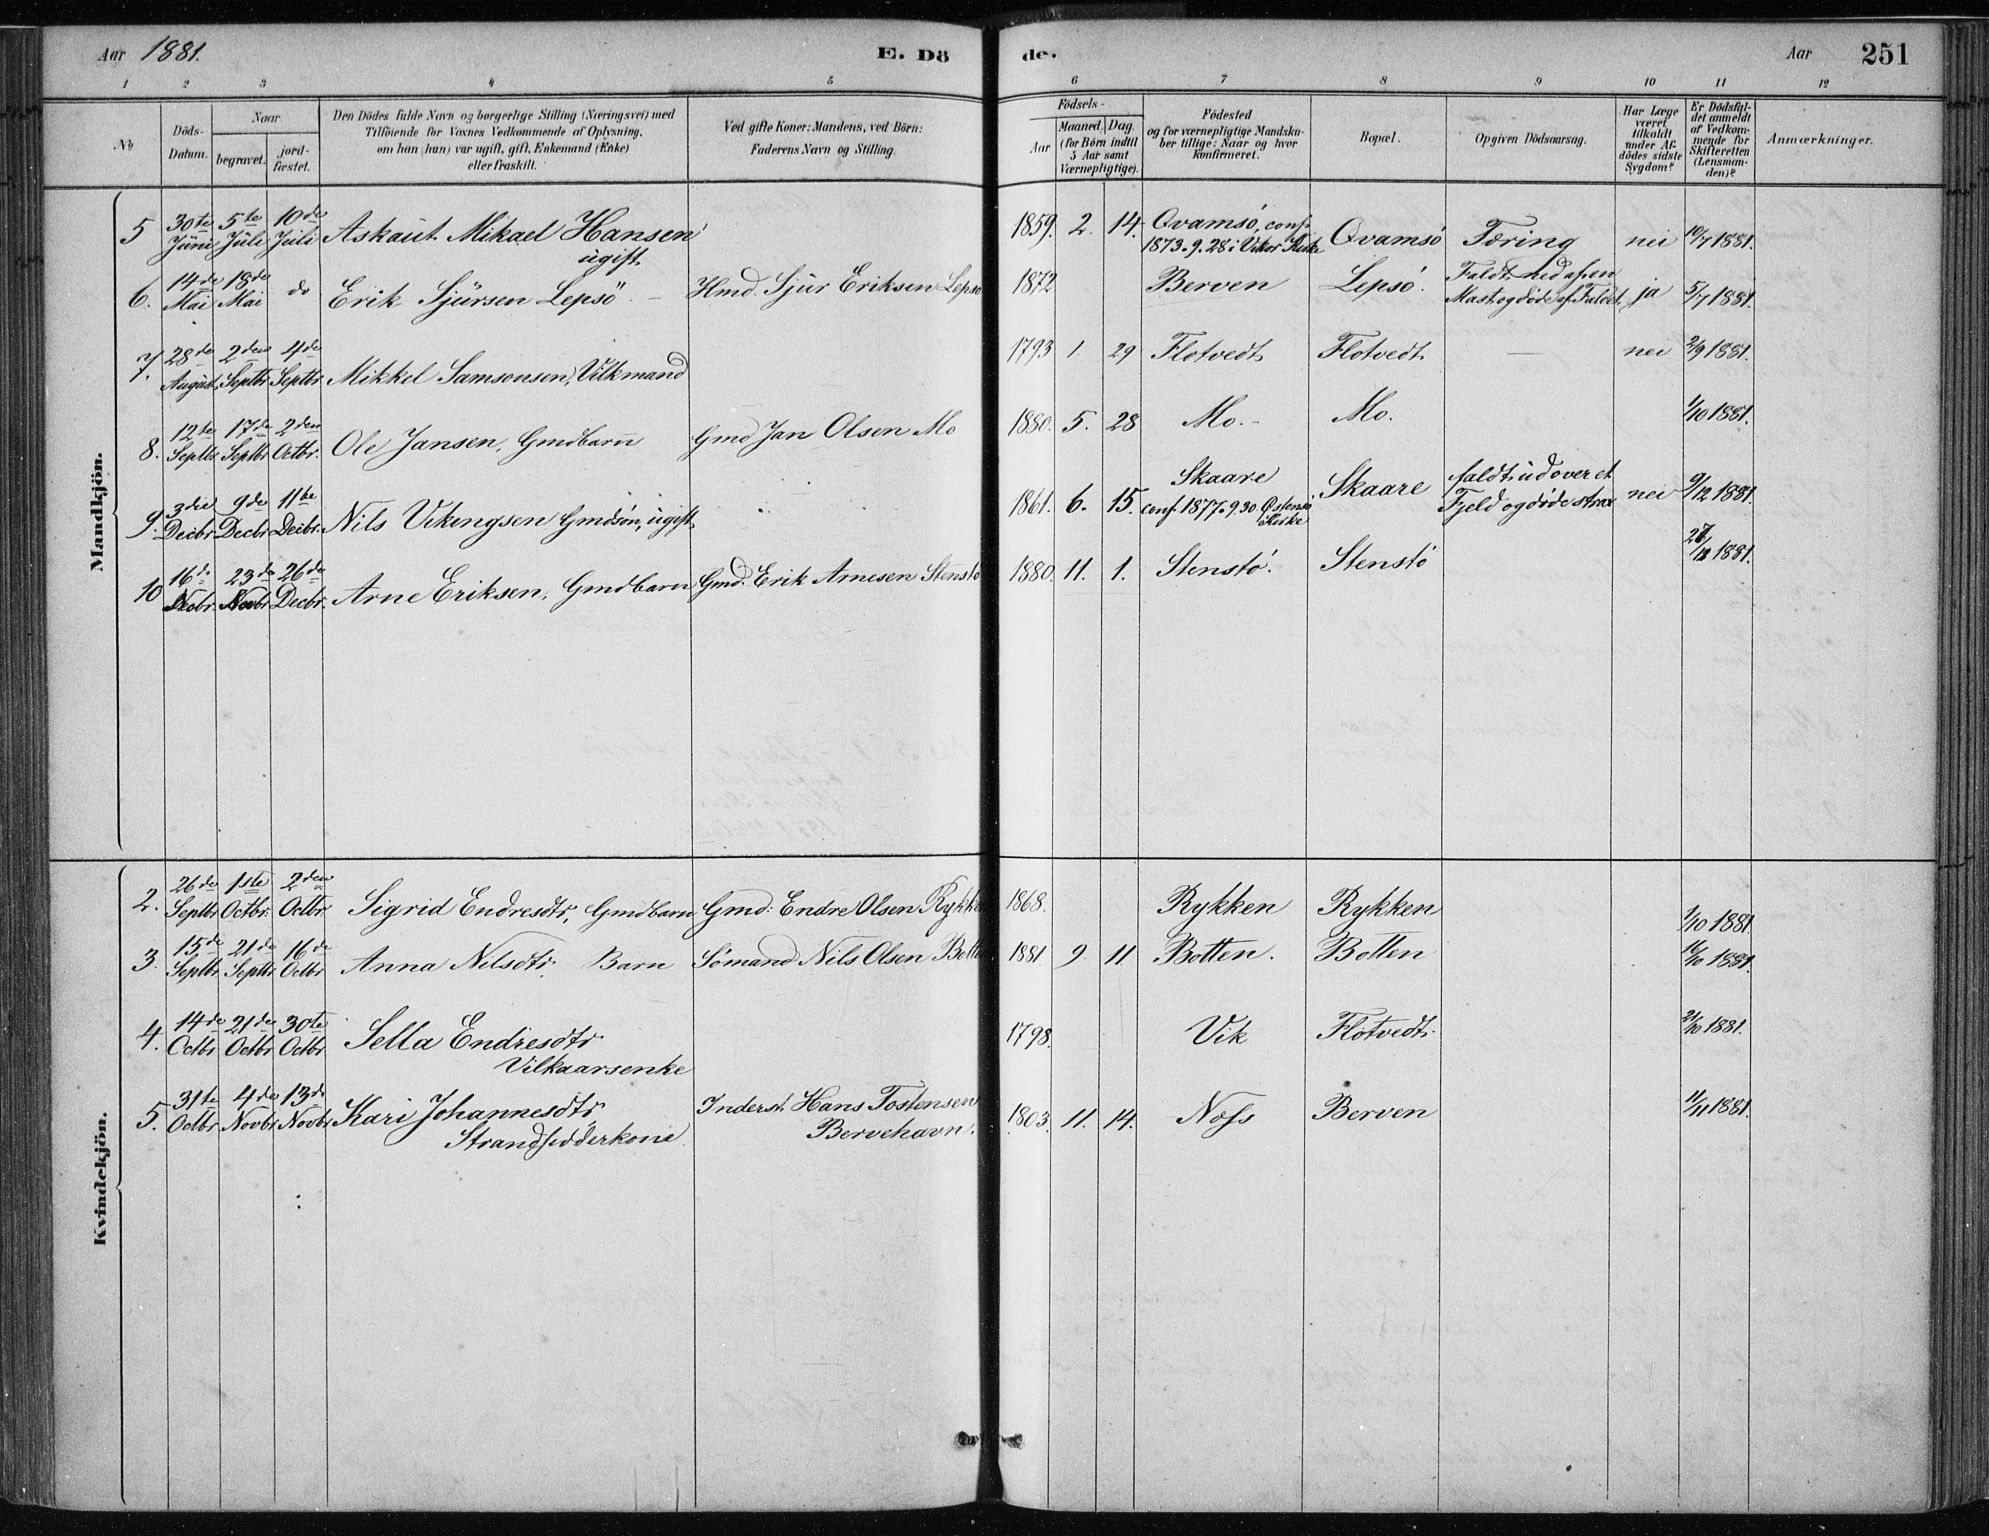 Aar 1881.
E. Dö
de.
Aar
251
1 2 3 4 5 6 7 8 9 10 11 12
No
Döds-
Datum.
Naar
begravet.
jord-
fæstet.
Den Dödes fulde Navn og borgerlige Stilling (Næringsvei) med
Tilföiende for Voxnes Vedkommende af Oplysning,
om han (hun) var ugift, gift, Enkemand (Enke)
eller fraskilt.
Ved gifte Koner: Mandens, ved Börn:
Faderens Navn og Stilling.
Födsels-
Aar
Maaned.
Dag.
(for Börn indtil
5 Aar samt
Værnepligtige).
Födested
og for værnepligtige Mandska-
ber tillige: Naar og hvor
konfirmeret.
Bopæl.
Opgiven Dödsaarsag.
Har Læge
været
tilkaldt
under Af-
dödes sidste
Sygdom?
Er Dödsfal-
det anmeldt
af Vedkom-
mende for
Skifteretten
(Lensman-
den)?
Anmærkninger.
Mandkjön.
5 30te Juni 5te Juli 10de Juli Askaut Mikael Hansen ugift 1859. 2. 14. Qvamsö, conf. 1873.9.28 i Vikør Kirke Qvamsö Tæring nei 10/7 1881.
6. 14de Mai 18de Mai do Erik Sjursen Lepsö Hmd. Sjur Eriksen Lepsö 1872 Berven Lepsö. Faldt ned af en Mast og döde af Faldet. ja 5/7 1881.
7. 28de August 2den Septbr 4de Septbr Mikkel Samsonsen, Vilkmand 1793 1. 29 Flotvedt Flotvedt. — nei 2/9 1881.
8. 12te Septbr 17de Septbr 2den Octbr. Ole Jansen, Gmdbarn Gmd Jan Olsen Mo 1880. 5. 28 Mo. Mo. 1/10 1881.
9. 3die Decbr 9de Decbr 11te Decbr. Nils Vikingsen Gmdsøn, ugift 1861. 6. 15. Skaare conf. 1877.9.30 Østensö Kirke Skaare faldt ud over et Fjeld og döde strax nei 9/12 1881.
10 16de 23de 26de Decbr. Arne Eriksen, Gmdbarn Gmd. Erik Arnesen Stenstö 1880. 11. 1. Stenstö. Stenstö 1881.
Kvindekjön.
2. 26de Septbr 1ste Octbr. 2den Octbr. Sigrid Endresdtr, Gmdbarn Gmd: Endre Olsen Rykken 1868. Rykken Rykken 1/10 1881
3. 15de Septbr 21de Septbr 16de Octbr Anna Nilsdtr. Barn Sömand Nils Olsen Botten 1881 9. 11 Botten. Botten 16/10 1881.
4. 14de Octbr 21de Octbr 30te Octbr Sella Endresdtr Vilkaarsenke 1798. Vik Flotvedt. 21/10 1881.
5. 31te Octbr 4de Novbr 13de Novbr Kari Johannesdtr Strandsidderkone Inderst. Hans Tostensen Bervehavn. 1803. 11. 14. Næss Berven 11/11 1881.